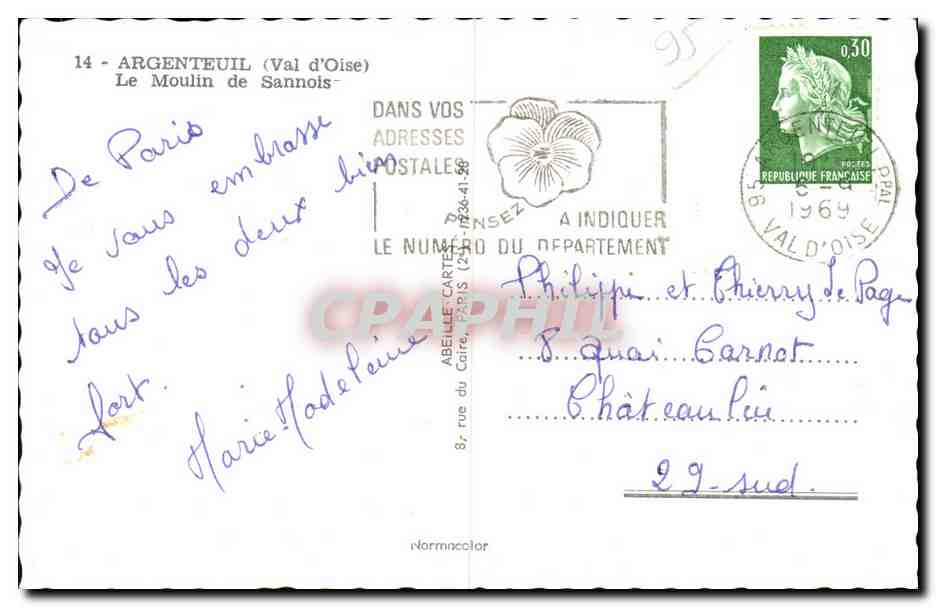 14 - ARGENTEUIL (Val d'Oise)
Le Moulin de Sannois
95
De Paris
Je vous embrasse
tous les deux bien
fort.
Marie-Madeleine
DANS VOS
ADRESSES
POSTALES
PENSEZ
A INDIQUER
LE NUMÉRO DU DEPARTEMENT
0,30
POSTES
REPUBLIQUE FRANÇAISE
95 ARGENTEUIL PPAL
1969
VAL D'OISE
ABEILLE CARTES
8, rue du Caire, PARIS (2e)
CPAPHIL
Philippe et Thierry Le Page
8 quai Carnot
Châteaulin
29-sud.
Normacolor